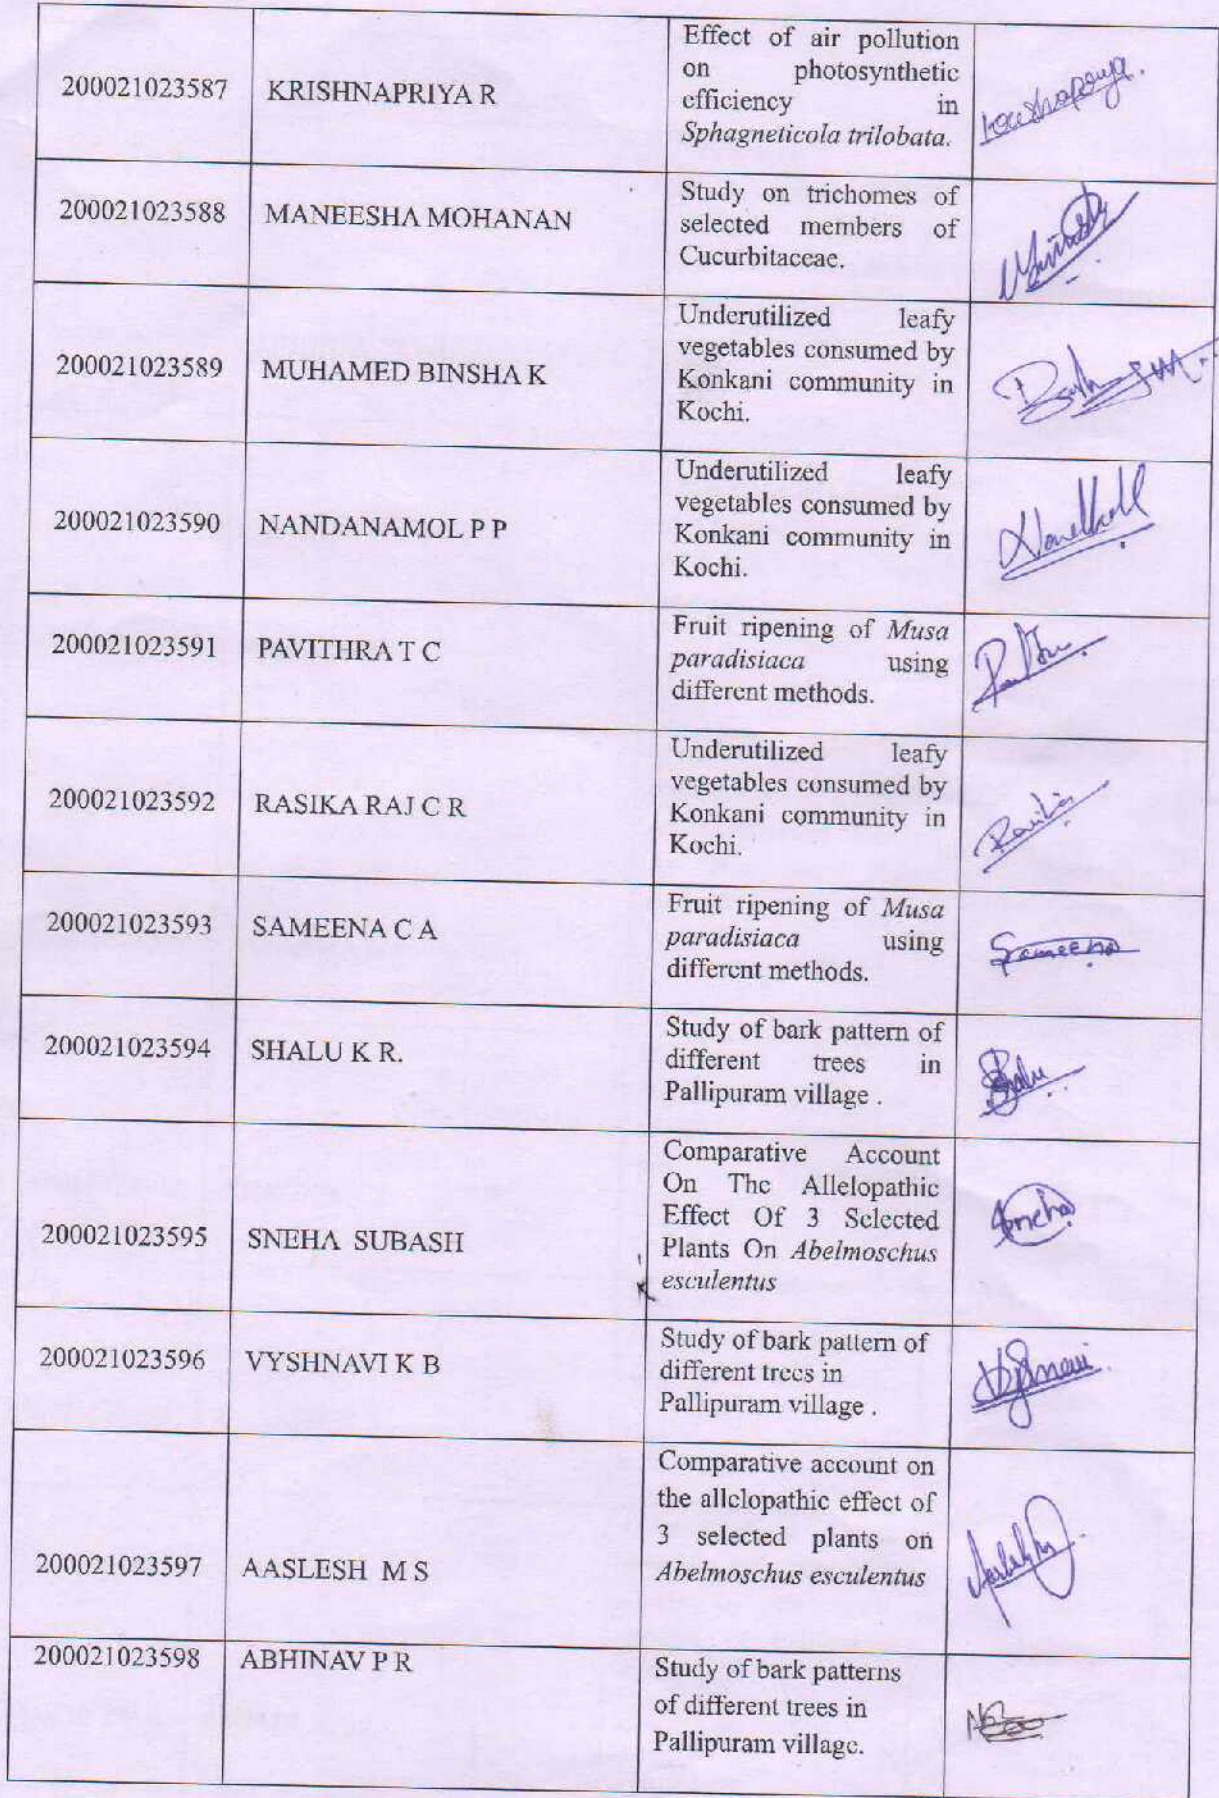 200021023587 KRISHNAPRIYA R Effect of air pollution
on photosynthetic
efficiency in
Sphagneticola trilobata.
200021023588 MANEESHA MOHANAN Study on trichomes of
selected members of
Cucurbitaceae.
200021023589 MUHAMED BINSHA K Underutilized leafy
vegetables consumed by
Konkani community in
Kochi.
200021023590 NANDANAMOL P P Underutilized leafy
vegetables consumed by
Konkani community in
Kochi.
200021023591 PAVITHRA T C Fruit ripening of Musa
paradisiaca using
different methods.
200021023592 RASIKA RAJ C R Underutilized leafy
vegetables consumed by
Konkani community in
Kochi.
200021023593 SAMEENA C A Fruit ripening of Musa
paradisiaca using
different methods.
Sameena
200021023594 SHALU K R. Study of bark pattern of
different trees in
Pallipuram village .
Shalu
200021023595 SNEHA SUBASH Comparative Account
On The Allelopathic
Effect Of 3 Selected
Plants On Abelmoschus
esculentus
Sneha
200021023596 VYSHNAVI K B Study of bark pattern of
different trees in
Pallipuram village .
200021023597 AASLESH M S Comparative account on
the allelopathic effect of
3 selected plants on
Abelmoschus esculentus
200021023598 ABHINAV P R Study of bark patterns
of different trees in
Pallipuram village.